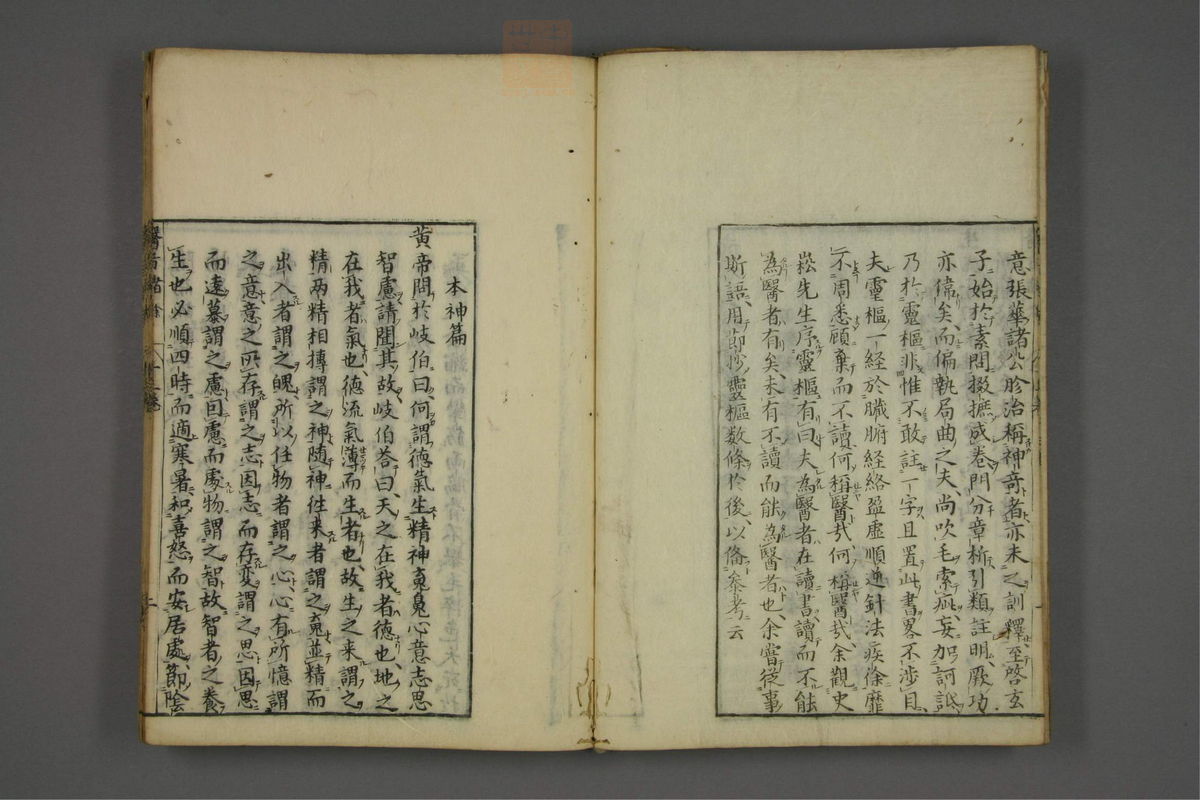 意張華諸公於治稱神竒者亦未之訓釋至啓玄
子始於素問掇摭成卷門分章析引類註明厥功
亦偉矣而偏執局曲之夫尚吹毛索疵妄加訶詆
乃於靈樞非惟不敢註一字且置此書畧不涉目
夫靈樞一經於臓腑経絡盈虛順逆針法疾徐靡
不周悉顧棄而不讀何稱醫㢤何稱醫㢤余觀史
崧先生序靈樞有曰夫為醫者在讀書讀而不能
為醫者有矣未有不讀而能為醫者也余嘗從事
斯語用節抄靈樞数條於後以俻叅考云
本神篇
黄帝問於岐伯曰何謂德氣生精神䰟魄心意志思
智慮請問其故岐伯荅曰天之在我者德也地之
在我者氣也德流氣薄而生者也故生之来謂之
精兩精相摶謂之神随神徃来者謂之䰟並精而
出入者謂之魄所以任物者謂之心心有所憶謂
之意意之所存謂之志因志而存変謂之思因思
而遠慕謂之慮因慮而處物謂之智故智者之養
生也必順四時而適寒暑和喜怒而安居處節陰